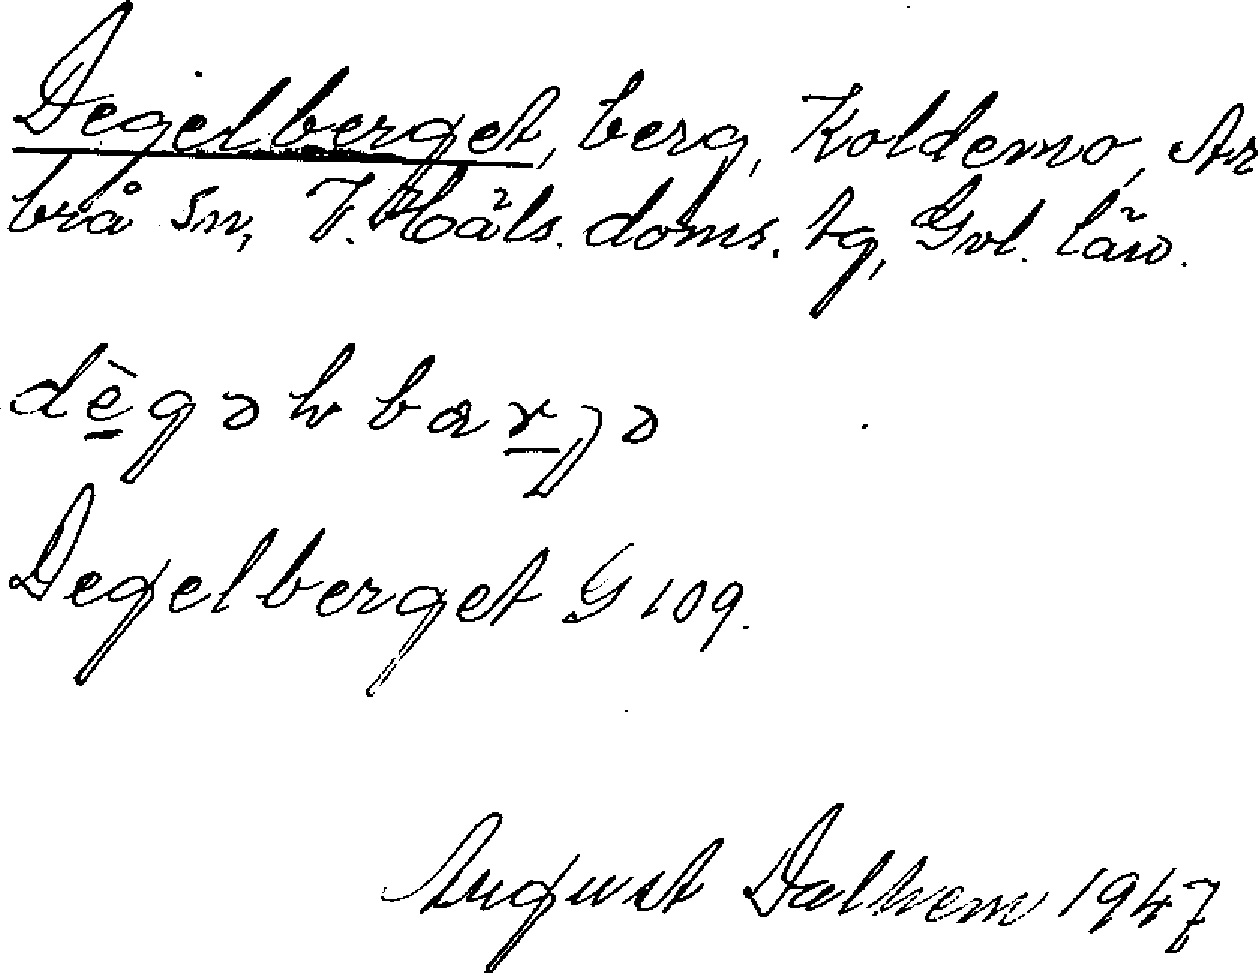 Degelberget, berg, Koldemo, Ar
brå sn, V. Häls. doms. tg, Gvl. län.
dègəlbærjə
Degelberget G 109.
August Dalhem 1947